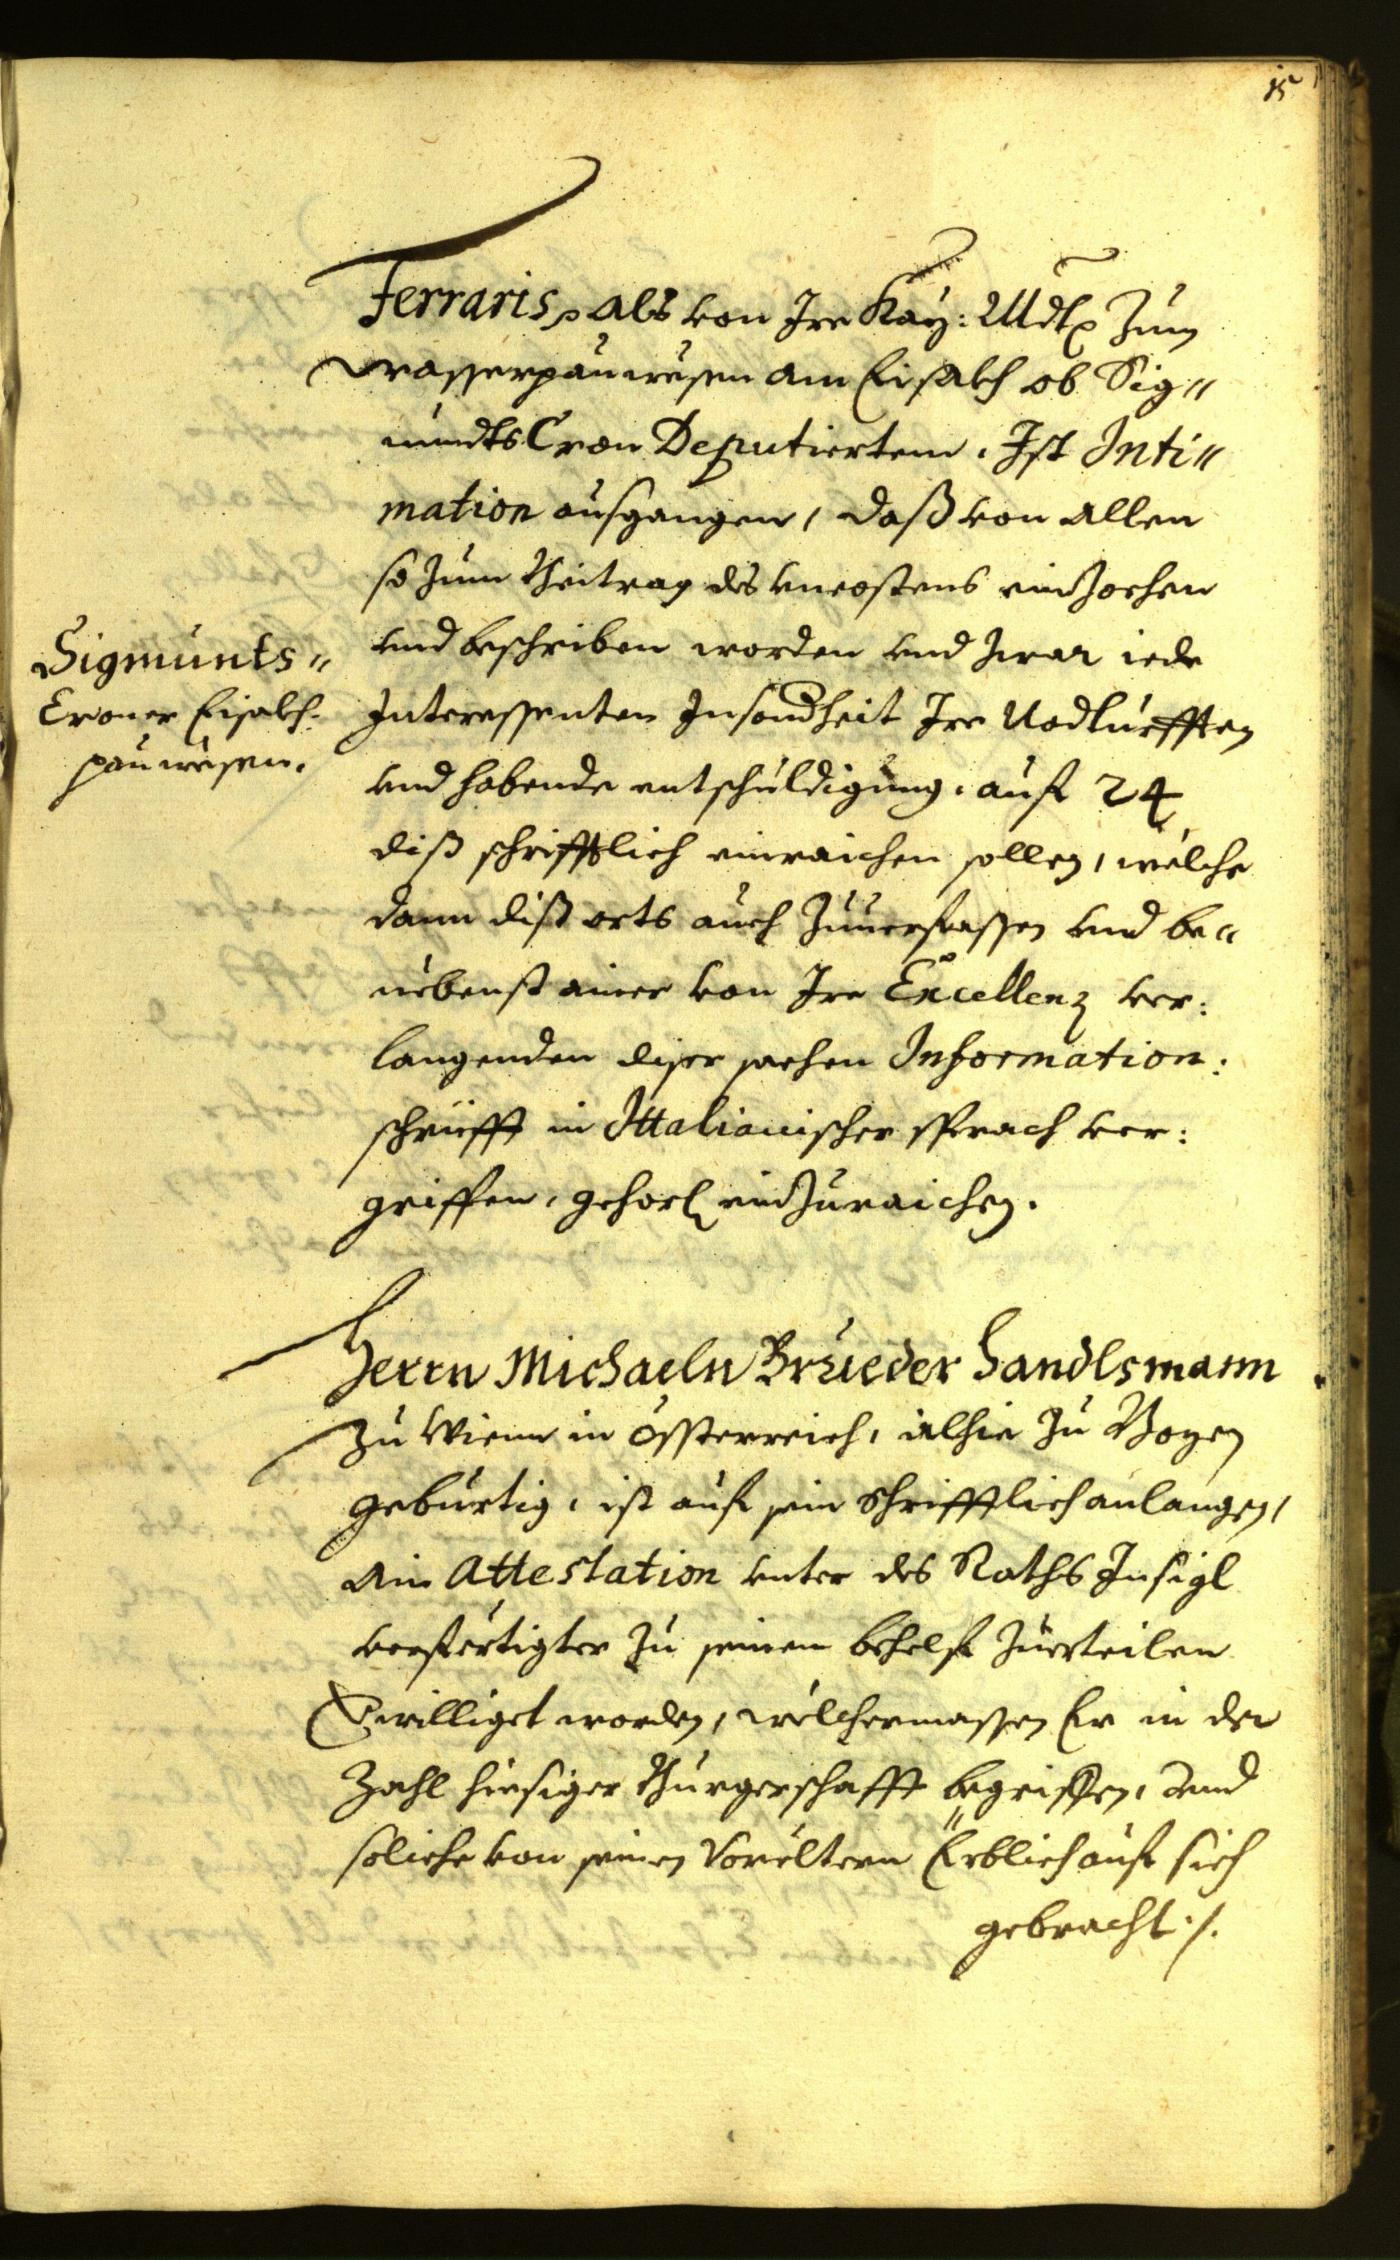 15
Ferraris, als von Ire Kay: Mdt. Zum
Wasserpauwesen am Eisakh ob Sig„
mundts Cron Deputiertem, Ist Inti„
mation ausgangen, daß von allen
so zum Beitrag des uncostens einzochen
und beschriben worden und zwar iede
Interessenten Insondheit Ire Nodturfften
und habende entschuldigung, auf 24
diß schrifftlich einraichen sollen, welche
dann diß orts auch zuuerfassen und be„
nebenst ainer von Ire Excellenz ver:
langenden diser sachen Information:
schrüfft in Ittalianischer sprach ver:
griffen, gehors. einzuraichen.
Sigmunts„
Croner Eisakh:
pauwesen.
Herrn Michaeln Brueder Handlsmann
Zu Wienn in Össterreich, alhie zu Bozen
gebürtig, ist auf sein schrifftlich anlangen,
ain Attestation unter des Raths Insigl
verfertigter zu seinem behelf zuerteilen
Gwilliget worden, welchermassen Er in der
Zahl hiesiger Burgerschafft begriffen, und
soliche von seinen Voreltern Erblich auf sich
gebracht ./.